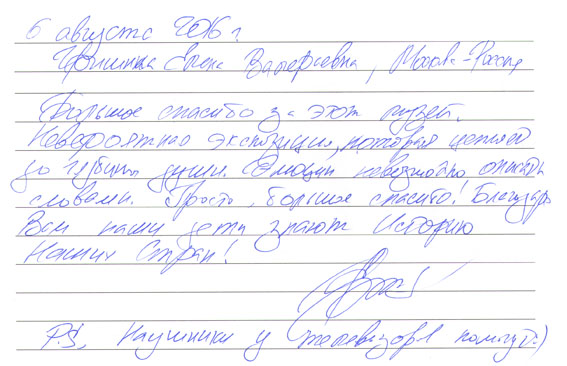 6 августа 2016 г.
Елена Валериевна, Москва-Россия
Большое спасибо за этот музей.
Невероятная экспозиция, которая цепляет
до глубины души. Эмоции невозможно описать
словами. Просто, большое спасибо! Благодаря
Вам наши дети знают Историю
Наших Стран!
P.S. Наушники у телевизора помогут:)